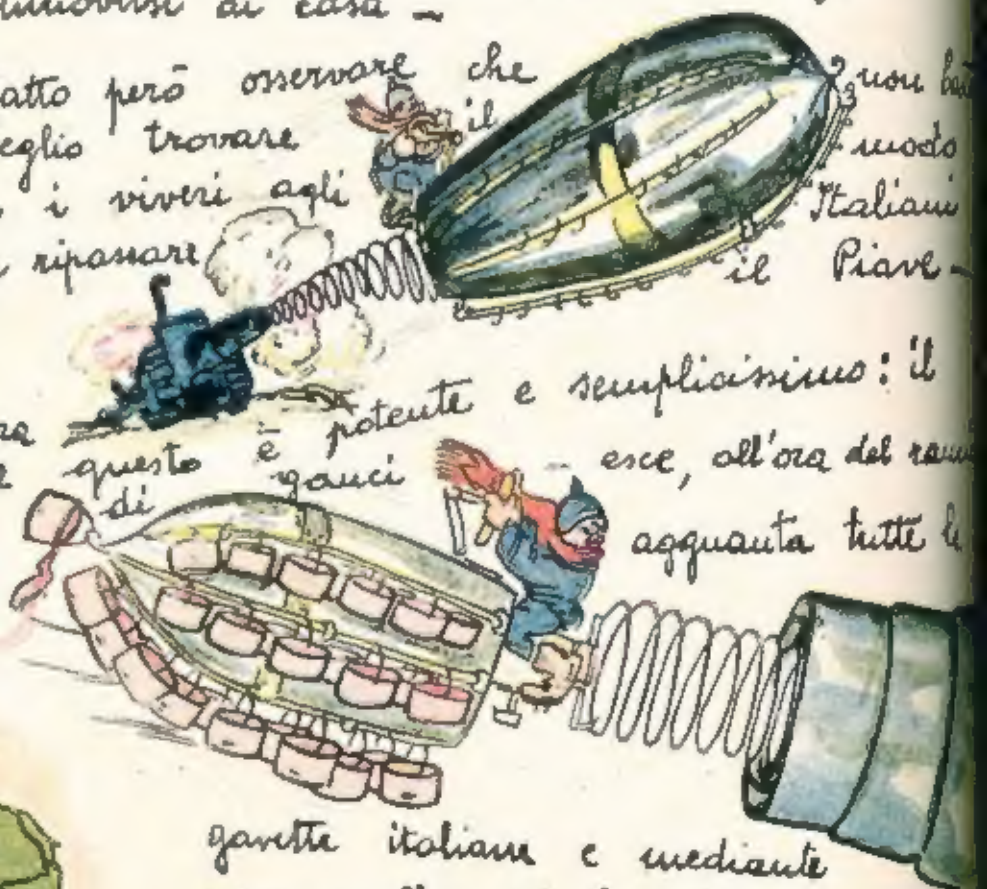 di casa –
però osservare che non
trovare il modo
i viveri agli Italiani
ripassare il Piave –
questo è potente e semplicissimo: il
di ganci esce, all'ora del
agguanta tutte le
gavette italiane e mediante